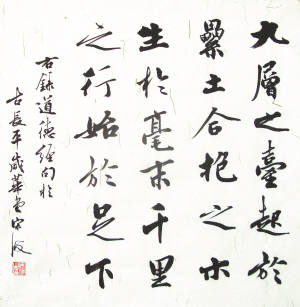 九層之臺起於
纍土合抱之木
生於毫末千里
之行始於足下
右錄道德經句於
古長平